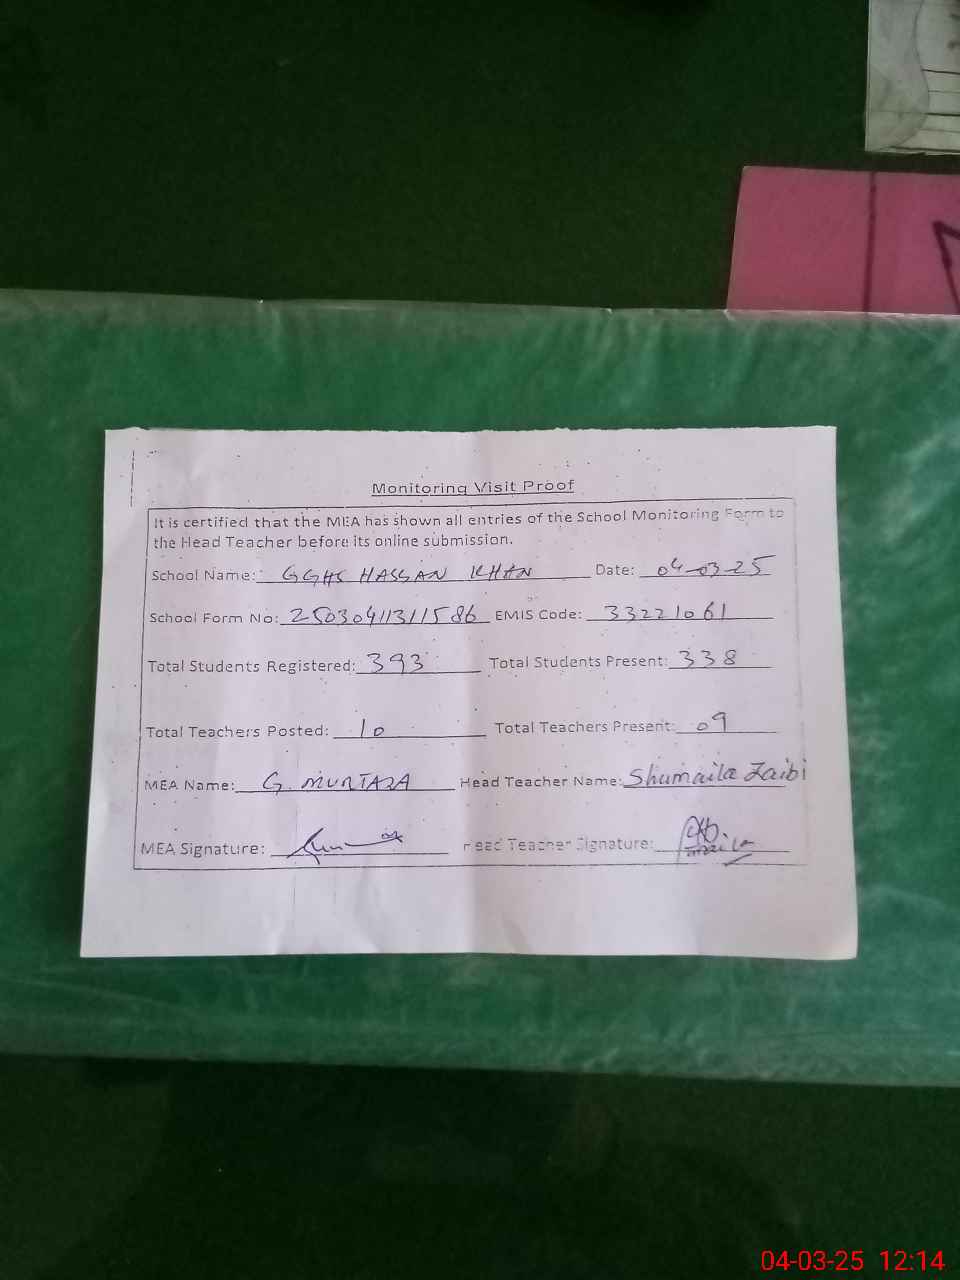 Monitoring Visit Proof
It is certified that the MEA has shown all entries of the School Monitoring Form to
the Head Teacher before its online submission.
School Name: GGHS HASSAN KHAN Date: 04-03-25
School Form No: 250304113111586 EMIS Code: 33221061
Total Students Registered: 393 Total Students Present: 338
Total Teachers Posted: 10 Total Teachers Present: 09
MEA Name: G. MURTAZA Head Teacher Name: Shumaila Zaibi
MEA Signature: Head Teacher Signature:
04-03-25 12:14